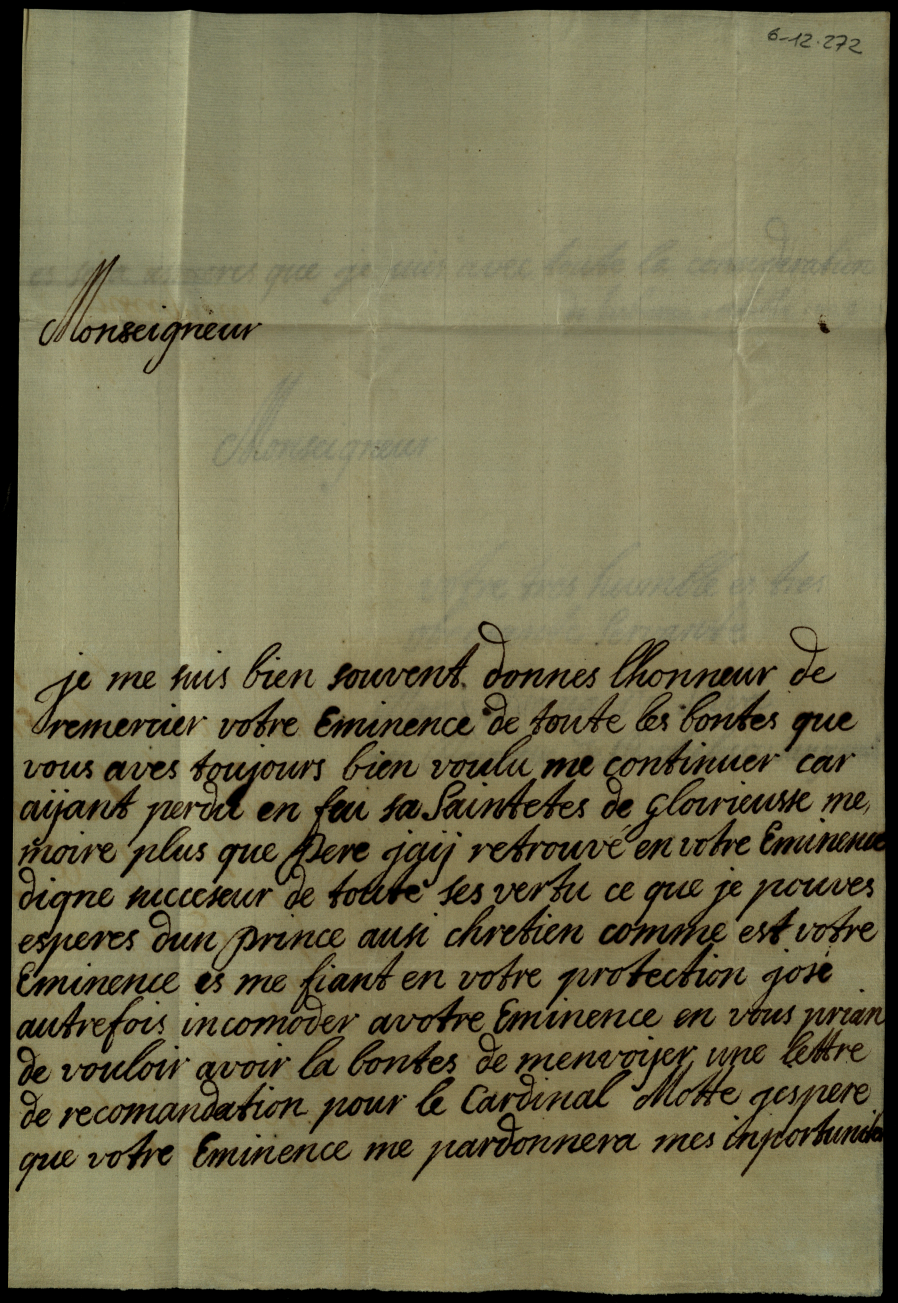 6-12.272
Monseigneur
je me suis bien souvent donnes lhonneur de
remercier votre Eminence de toute les bontes que
vous aves toujours bien voulu me continuer car
aijant perdu en feu sa Saintetes de glorieusse me,
moire plus que Pere jgij retrouvé en votre Eminence
digne succeseur de toute ses vertu ce que je pouves
esperes dun prince ausi chretien comme est votre
Eminence es me fiant en votre protection josé
autrefois incomoder avotre Eminence en vous prian
de vouloir avoir la bontes de menvoijer une lettre
de recomandation pour le Cardinal Motte jespere
que votre Eminence me pardonnera mes inportunites
que je suis avec toute la consideration
Monseigneur
votre tres humble es tres